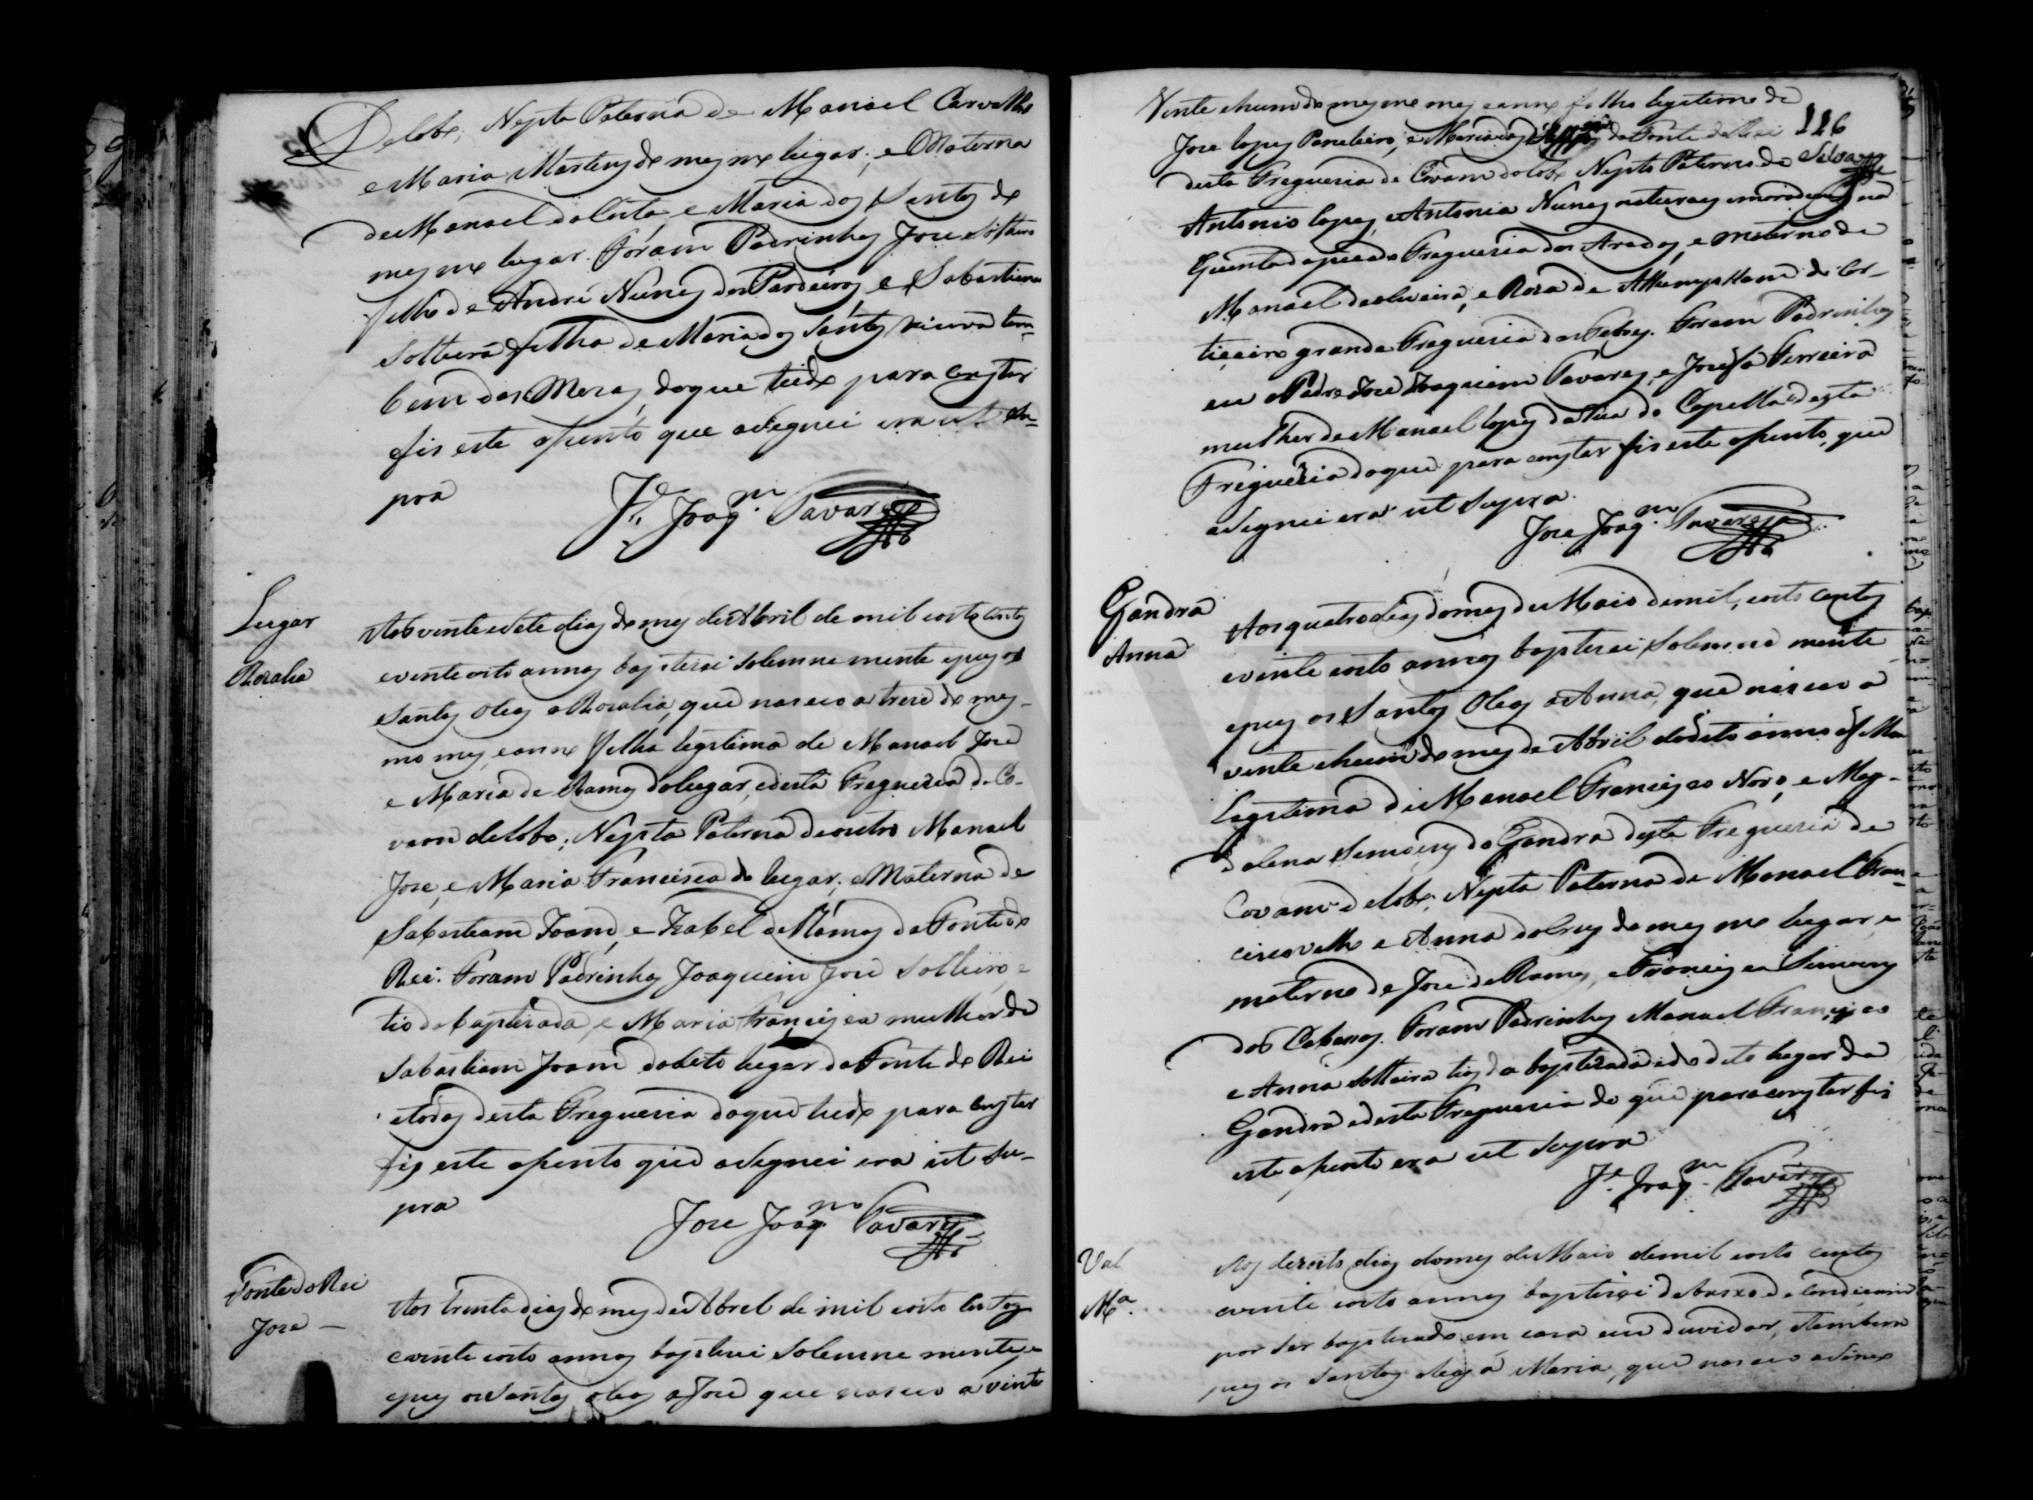 de Lobo, Nepta Paterna de Manoel Carvalho
e Maria Martins do mesmo lugar, e Materna
de Manoel da Costa, e Maria dos Santos do
mesmo lugar. Foram Padrinhos Jose solteiro
filho de André Nunes dos Pardeiros e Sabastiana
solteira filha de Maria dos Santos viuva tam-
bem das Meras, do que tudo para constar
fis este asento que asignei era ut su-
pra
Je. Joaqm. Tavares
Lugar
Rozalia
Aos vinte e sete dias do mes de Abril de mil oito centos
e vinte oito annos baptizei solemne mente e pus os
Santos Oleos a Rozalia, que nasceo a treze do mes-
mo mes, e anno filha legitima de Manoel Jose
e Maria de Ramos do Lugar, e desta Freguezia de Co-
vam do Lobo; Nepta Paterna de outro Manoel
Jose, e Maria Francisca do Lugar; e Materna de
Sabastiam Joam, e Izabel de Ramos da Fonte do
Rei. Foram Padrinhos Joaquim Jose Solteiro, e
tio da baptizada, e Maria Francisca mulher de
Sabastiam Joam do dito lugar da Fonte do Rei
e todos desta Freguezia do que tudo para constar
fis este asento que asignei era ut su-
pra
Jose Joaqm. Tavares
Fonte do Rei
Joze
Aos trinta dias do mes de Abril de mil oito centos
e vinte oito annos baptizei Solemne mente, e
e pus os Santos oleos a Jose que nasceo a vinte
Vinte e hum do mesmo mes e anno filho legitimo de
Jose Lopes Paneleiro, e Maria da Fonte do Rei 116
desta Freguezia de Covam do Lobo Nepto Paterno de Silva
Antonio Lopes, e Antonia Nunes naturaes e moradores na
Quinta Freguezia das Aradas, e materno de
Manoel de oliveira, e Roza de do Cor-
ticeiro grande Freguezia das Febres. Foram Padrinhos
eu o Padre Jose Joaquim Tavares, e Josefa Ferreira
mulher de Manoel Lopes da Rua da Capella desta
Freguezia do que para constar fis este asento, que
asignei era ut supra.
Jose Joaqm. Tavares
Gandra
Anna
Aos quatro dias do mes de Maio de mil, oito centos
e vinte oito annos baptizei Solemne mente
e pus os Santos Oleos a Anna, que nasceo a
vinte e hum do mes de Abril do dito anno filha
Legitima de Manoel Francisco Novo, e Mag-
dalena Simoens da Gandra desta Freguezia de
Covam do Lobo; Nepta Paterna de Manoel Fran-
cisco velho e Anna da Cruz do mesmo lugar, e
materna de Jose de Ramos, e Francisca Simoens
das Cabanas. Foram Padrinhos Manoel Francisco
e Anna solteira tios da baptizada e do dito lugar da
Gandra e desta Freguezia do que para constar fis
este asento era ut supra
Je. Joaqm. Tavares
Val
Ma.
Aos dezoito dias do mes de Maio de mil oito centos
e vinte oito annos baptizei debaixo de condicam
por ser baptizada em casa em duvida, e tambem
pus os Santos oleos a Maria, que nasceo a sinco